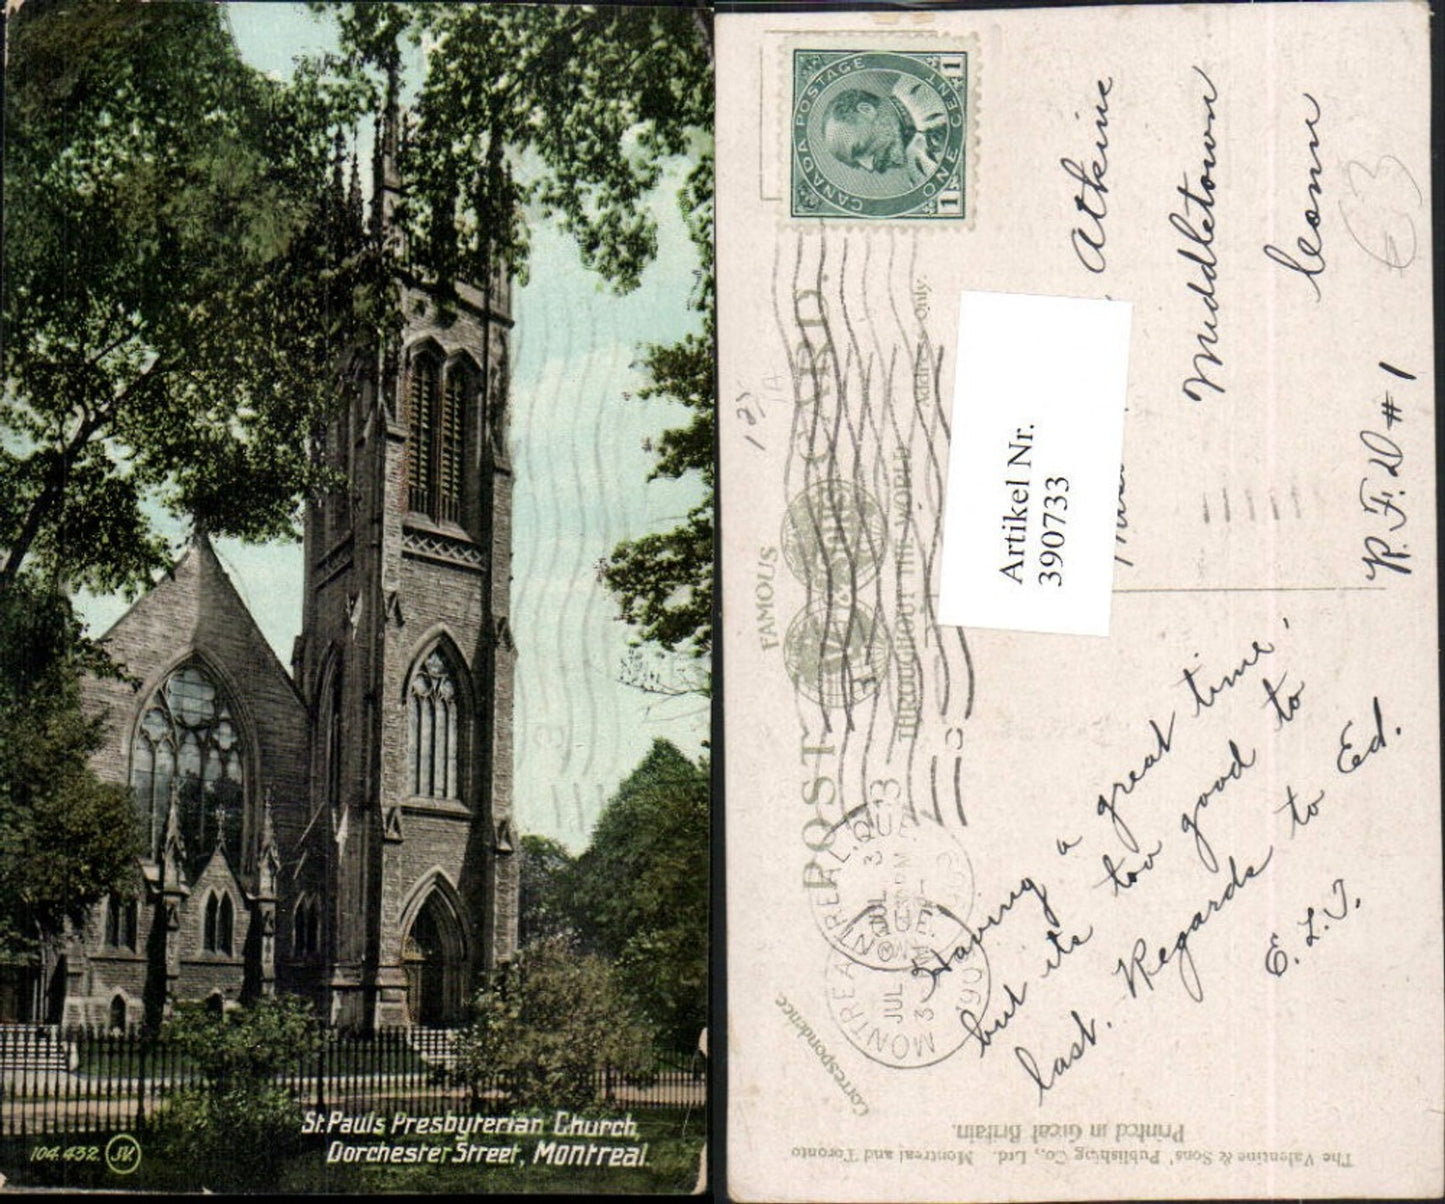 St. Pauls Presbyterian Church,
Dorchester Street, Montreal.
104.432. JV.
CANADA POSTAGE
ONE CENT
1 1
POST CARD.
FAMOUS
THROUGHOUT THE WORLD
Address only.
Correspondence
MONTREAL
JUL 3
190
Atkins
Middletown
Conn
R.F.D #1
€3
125
Artikel Nr.
390733
Having a great time,
but its too good to
last. Regards to Ed.
E.L.T.
The Valentine & Sons' Publishing Co., Ltd. Montreal and Toronto
Printed in Great Britain.